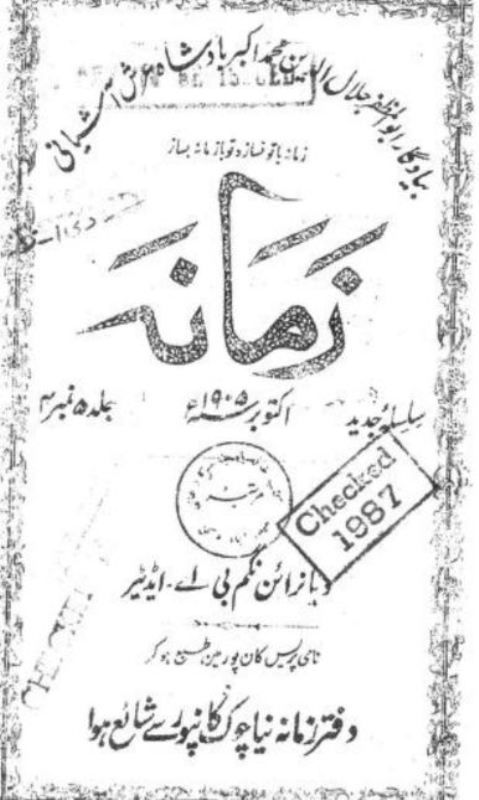 بیادگار ابوالمظفر جلال الدین محمد اکبر بادشاہ عرش آشیانی
زمانہ با تو نسازد تو با زمانہ بساز
زمانہ
سلسلۂ جدید اکتوبر ۱۹۰۵ء جلد ۵ نمبر ۴
مرتبہ
Checked
1987
نرائن نگم بی اے - ایڈیٹر
نامی پریس کان پور مین طبع ہو کر
دفتر زمانہ نیا چوک کانپور سے شائع ہوا